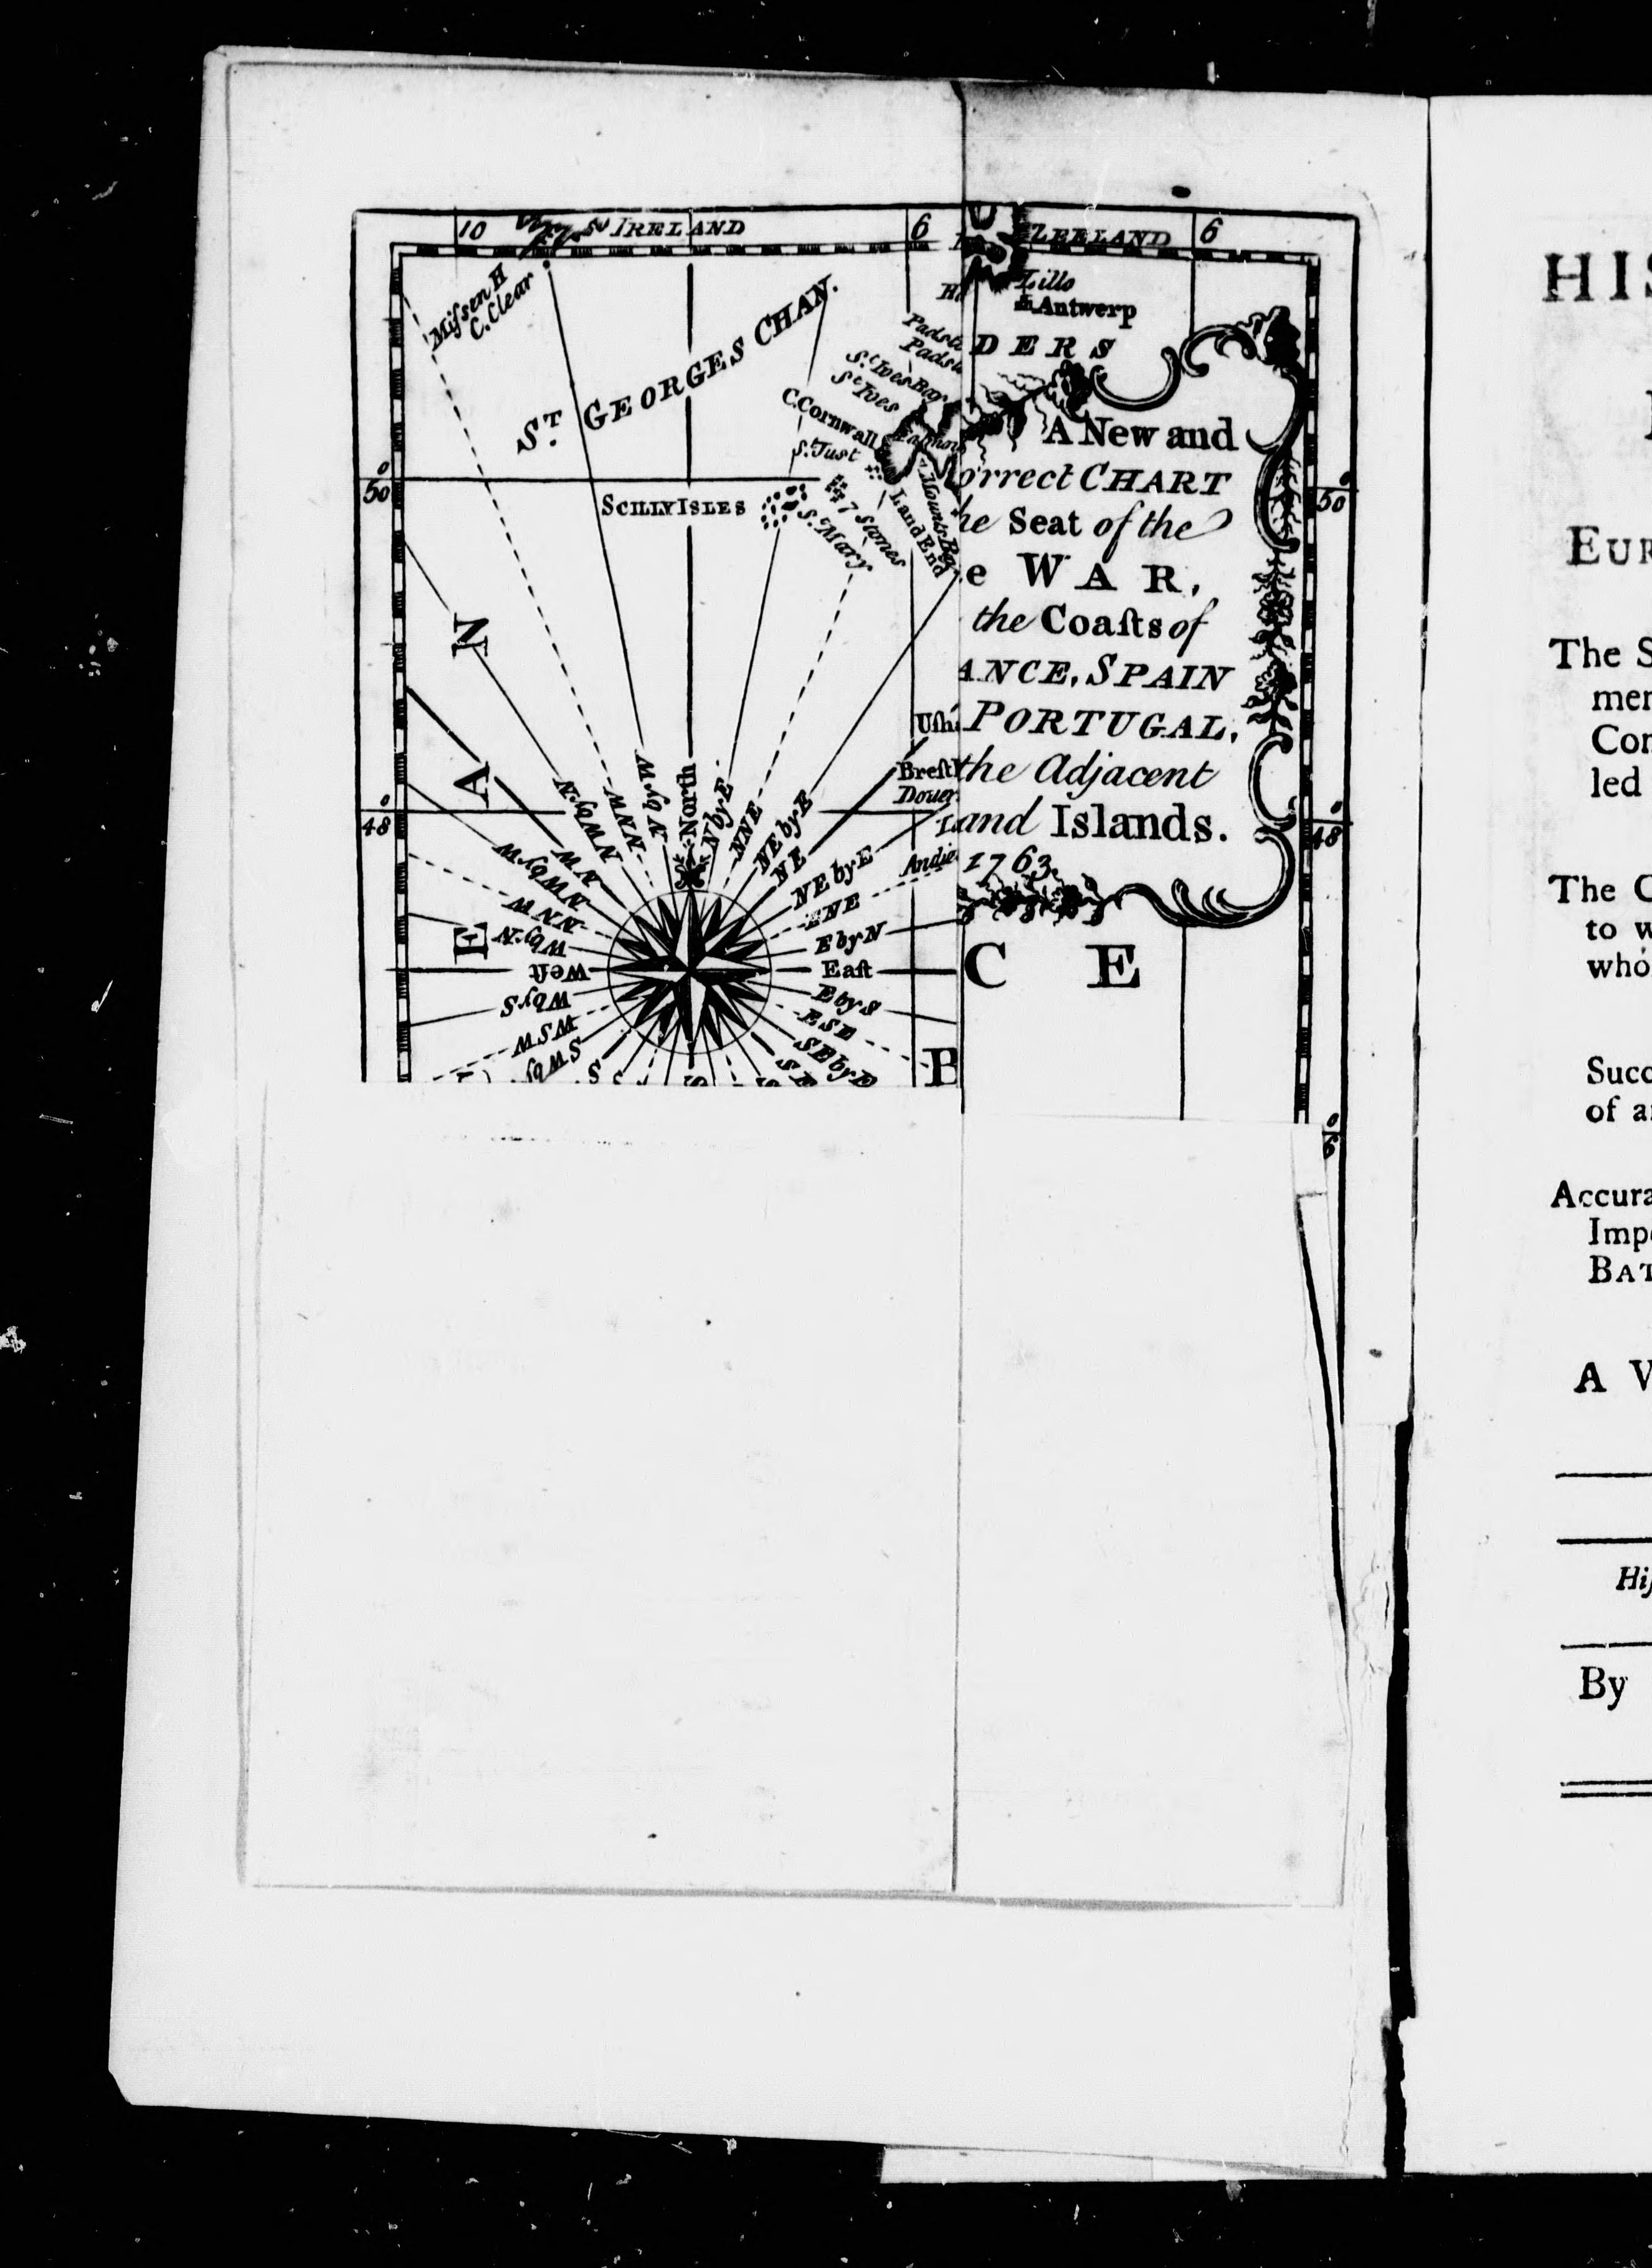 10
IRELAND
6
ZEELAND
6
Miſsen H
C. Clear
ST. GEORGES CHAN.
Lillo
Antwerp
DERS
Padst
Padst
St. Ives Bay
St. Ives
C. Cornwall
S. Just
Land End
Mounts Bay
50
SCILLY ISLES
7 Stones
S. Mary
A New and
orrect CHART
he Seat of the
e WAR,
the Coaſts of
ANCE, SPAIN
PORTUGAL,
the Adjacent
and Islands.
1763.
50
N
A
E
Uſh
Breſt
Douer
Andie
48
48
North
N by E
NNE
NE by E
NE
NE by E
ENE
E by N
Eaſt
E by S
ESE
SE by E
SE
N by W
NNW
NW by N
NW
NW by W
WNW
W by N
Weſt
W by S
WSW
SW by
C E
B
HIS
EUR
The S
men
Con
led
The C
to w
who
Succ
of a
Accura
Imp
BAT
A V
Hiſ
By